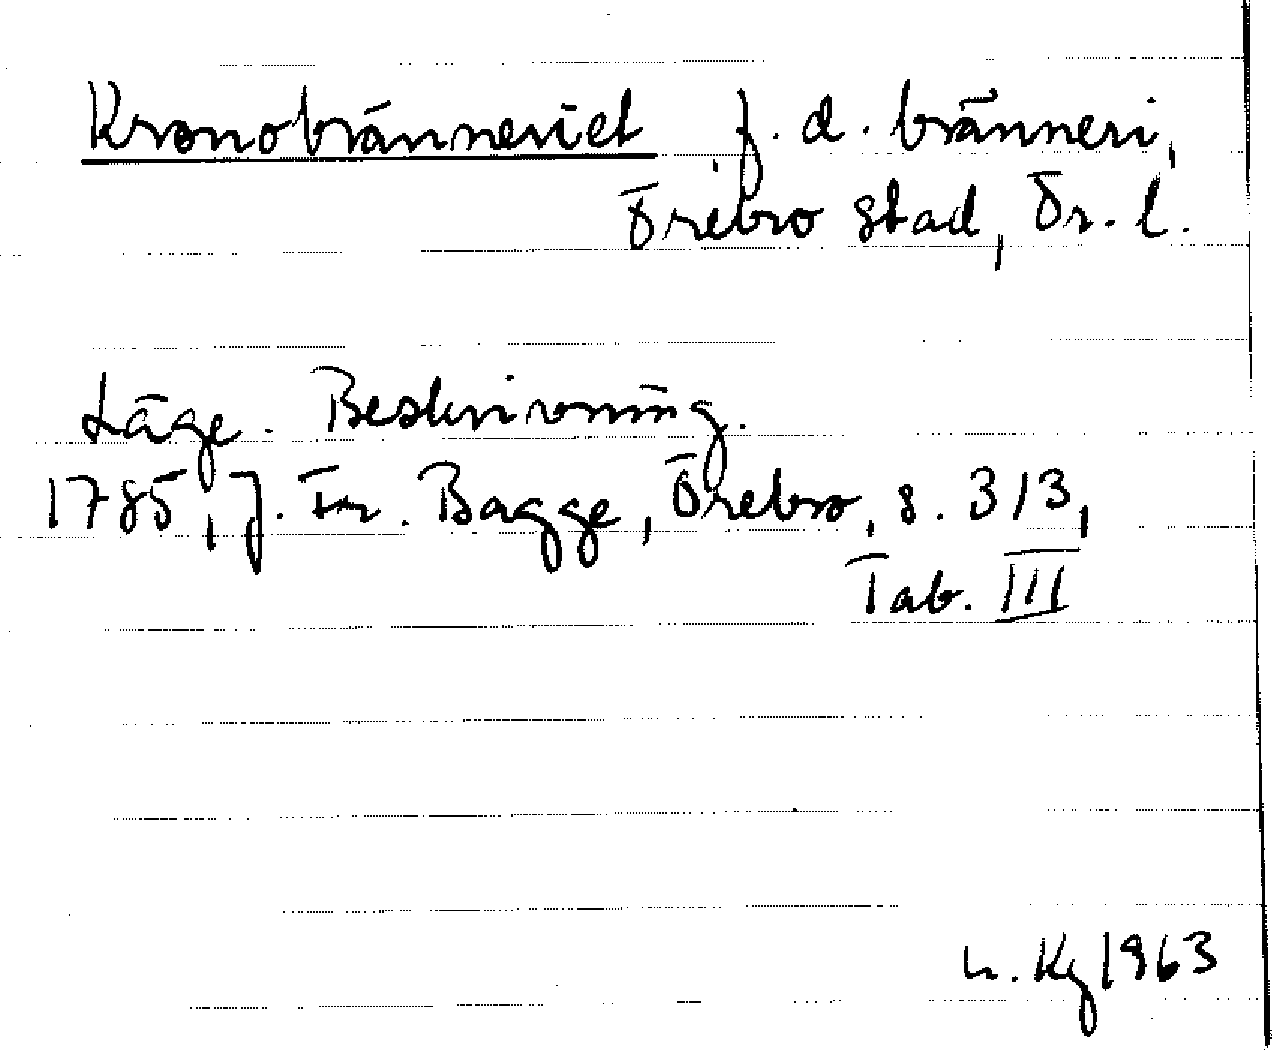 Kronobränneriet f. d. bränneri,
Örebro stad, Ör. l.
Läge. Beskrivning.
1785, J. Fr. Bagge, Örebro, s. 313,
Tab. III
h. Kg 1963